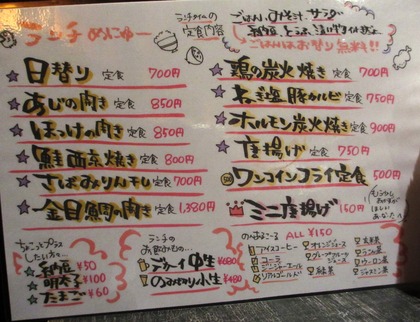 ランチめにゅー
ランチタイムの
定食内容
ごはん、みそ汁、サラダ
ごはんはお替り無料!!
日替り定食 700円
あじの開き定食 850円
ほっけの開き定食 850円
鮭西京焼き定食 800円
さばみりん干し定食 700円
金目鯛の開き定食 1,380円
鶏の炭火焼き定食 700円
ねぎ塩豚カルビ定食 750円
ホルモン炭火焼き定食 900円
唐揚げ定食 750円
ワンコインフライ定食 500円
ミニ唐揚げ 150円
もう少し
おかずが
ほしい
あなたへ
ちょこっとプラス
したい方…
納豆 ¥50
明太子 ¥100
たまご ¥60
ランチの
お飲みもの…
中生 ¥680
のみきり小生 ¥480
のみものいろいろ ALL ¥150
アイスコーヒー
コーラ
ジンジャーエール
オレンジジュース
グレープフルーツ
ジュース
緑茶
玄米茶
ウーロン茶
ジャスミン茶